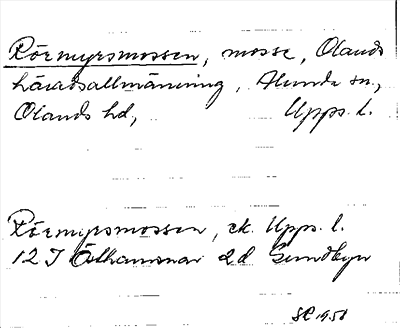 Rörmyrsmossen, mosse, Olands
häradsallmänning, Alunda sn.,
Olands hd, Upps. l.
Rörmyrsmossen, ek. Upps. l.
12 I Östhammar Sundbyn
1951